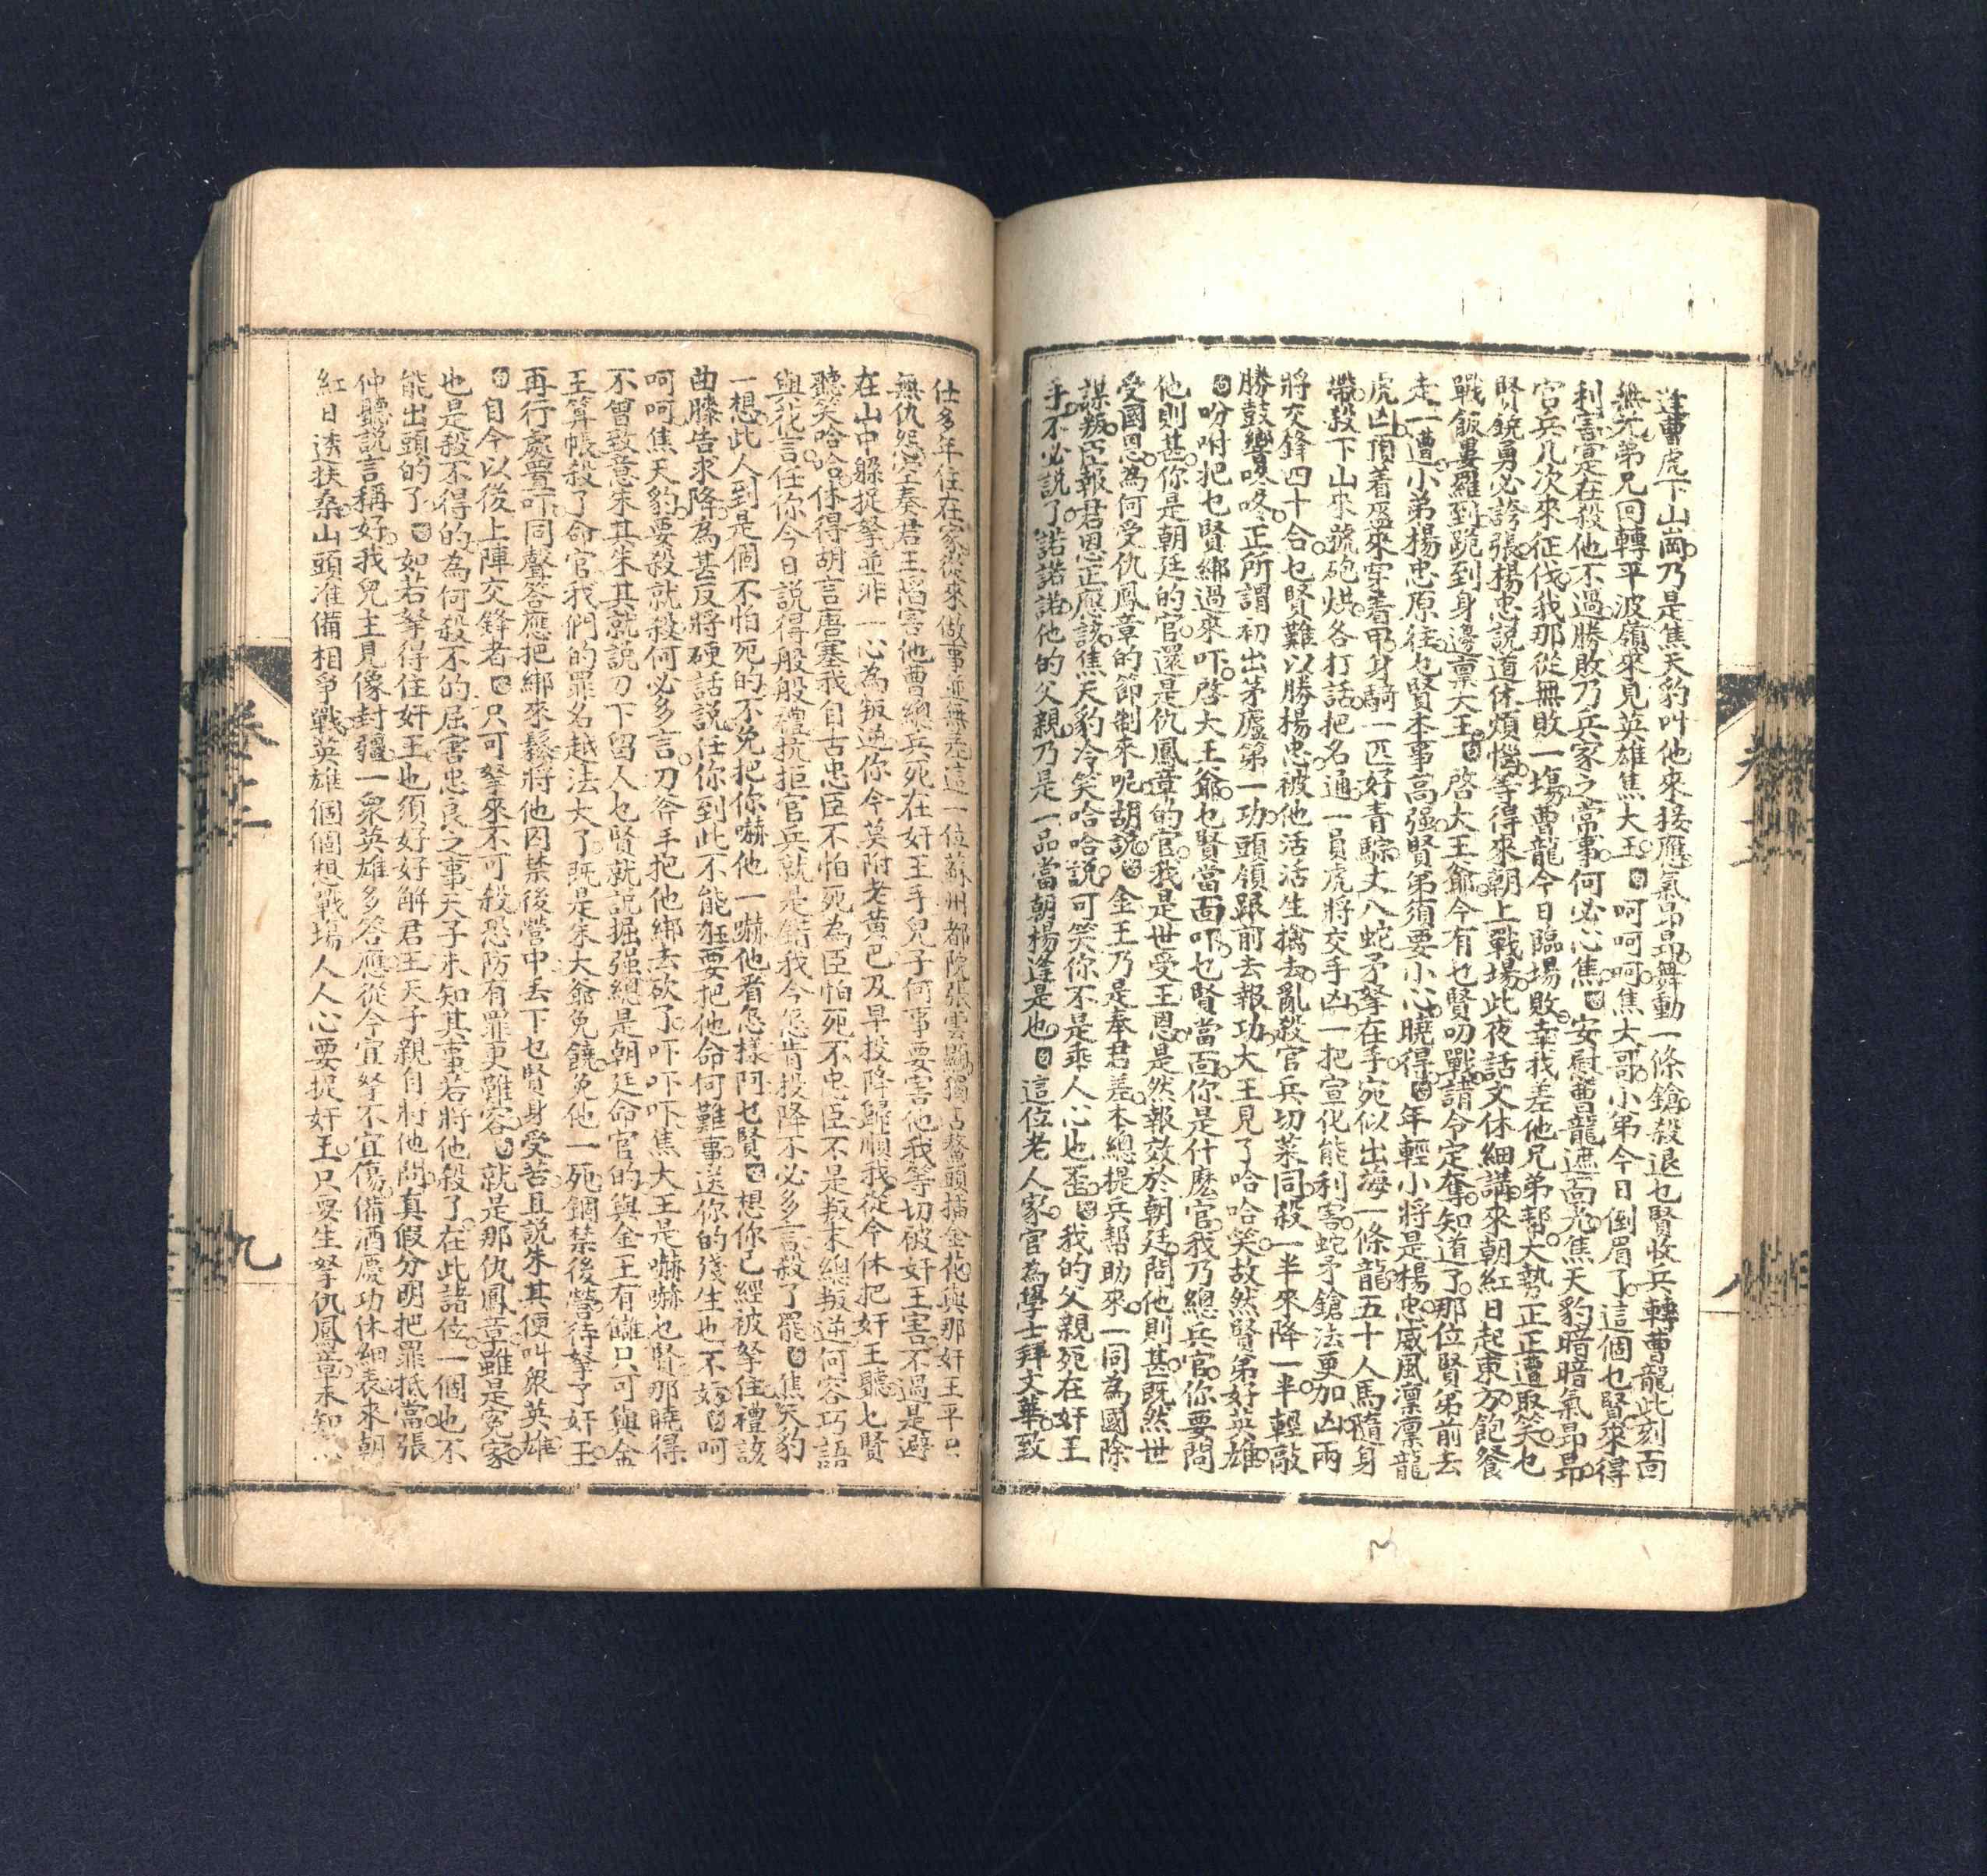 逢曹虎下山岡乃是焦天豹叫他來接應氣昂昂舞動一條鎗殺退乜賢收兵轉曹龍此刻面
無光弟兄回轉平波嶺來見英雄焦大王呵呵呵焦大哥小弟今日倒眉了這個乜賢來得
利害寔在殺他不過勝敗乃兵家之常事何必心焦安慰曹龍遮面光焦天豹暗暗氣昂昂
官兵几次來征伐我那從無敗一塲曹龍今日臨塲敗幸我差他兄弟帮大勢正正遭取笑乜
賢鏡勇必誇張楊忠說道休煩惱等得來朝上戰場此夜話文休細講來朝紅日起東方飽餐
戰飯婁羅到跪到身邊禀大王啓大王爺今有乜賢叨戰請令定奪知道了那位賢弟前去
走一遭小弟楊忠原往乜賢本事高强賢弟須要小心曉得年輕小將是楊忠威風凛凛龍
虎凶頂着盔來穿着甲身騎一匹好青騌丈八蛇矛拏在手宛似出海一條龍五十人馬隨身
帶殺下山來號砲烘各打話把名通一員虎將交手凶一把宣化能利害蛇矛鎗法更加凶兩
將交鋒四十合乜賢難以勝楊忠被他活活生擒去亂殺官兵切菜同殺一半來降一半輕敲
勝鼓響咚咚正所謂初出茅廬第一功頭領跟前去報功大王見了哈哈笑故然賢弟好英雄
吩咐把乜賢綁過來吓啓大王爺乜賢當面吓乜賢當面你是什麽官我乃總兵官你要問
他則甚你是朝廷的官還是仇鳳章的官我是世受王恩是然報效於朝廷問他則甚既然世
受國恩為何受仇鳳章的節制來呢胡說金王乃是奉君差本總提兵帮助來一同為國除
謀叛臣報君恩正應該焦天豹冷笑哈哈說可笑你不是乖人心也歪我的父親死在奸王
手不必說了諾諾諾他的父親乃是一品當朝楊逢是也這位老人家官為學士拜文華致
仕多年住在家從來做事並無差這一位蘇州都院張雲顯獨占鰲頭插金花與那奸王平日
無仇怨妄奏君王陷害他曹總兵死在奸王手兒子何事要害他我等切被奸王害不過是避
在山中躲捉拏並非一心為叛逆你今莫附老黃巴及早投降歸順我從今休把奸王聽乜賢
聽笑哈哈休得胡言唐塞我自古忠臣不怕死為臣怕死不忠臣不是叛末總叛逆何容巧語
與花言任你今日說得般般禮抗拒官兵就是錯我今怎肯投降不必多言殺了罷焦天豹
一想此人到是個不怕死的不免把你嚇他一嚇他看怎樣阿乜賢想你已經被拏住禮該
曲膝告求降為甚反將硬話說任你到此不能旺要把他命何難事送你的殘生也不妨呵
呵呵焦天豹要殺就殺何必多言刀斧手把他綁去砍了吓吓吓焦大王是嚇嚇乜賢那曉得
不曾致意朱其朱其就說刀下留人乜賢就說掘强總是朝廷命官的與金王有讎只可與金
王算帳殺了命官我們的罪名越法大了既是朱大爺免饒免他一死錮禁後營待拏了奸王
再行處置吓同聲答應把綁來鬆將他囚禁後營中丟下乜賢身受苦且說朱其便叫衆英雄
自今以後上陣交鋒者只可拏來不可殺恐防有罪更難容就是那仇鳳章雖是冤家
也是殺不得的為何殺不的屈害忠良之事天子未知其事若將他殺了在此諸位一個也不
能出頭的了如若拏得住奸王也須好好解君王天子親自將他問真假分明把罪抵當張
仲聽說言稱好我兒主見像封疆一衆英雄多答應從今宜拏不宜傷備酒慶功休細表來朝
紅日透扶桑山頭准備相爭戰英雄個個想戰場人人心要捉奸王只要生拏仇鳳章未知
卷三
九
卷三
八